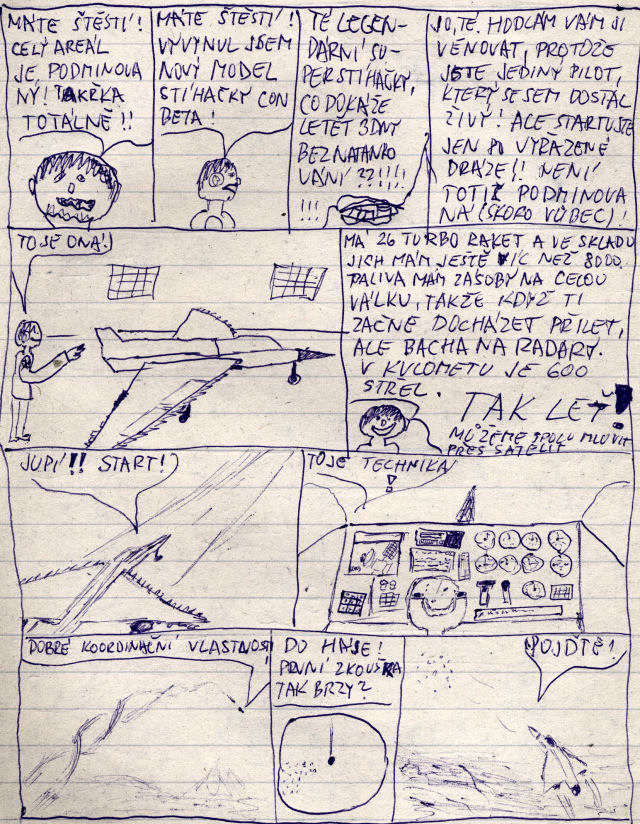 MÁTE ŠTĚSTÍ!
CELÝ AREÁL
JE PODMINOVA
NÝ! TAKŘKA
TOTÁLNĚ!!
MÁTE ŠTĚSTÍ!
VYVYNUL JSEM
NOVÝ MODEL
STÍHAČKY CON
BETA!
TÉ LEGEN-
DÁRNÍ SU-
PERSTÍHAČKY,
CO DOKÁŽE
LETĚT 3 DNY
BEZ NATANKO
VÁNÍ ??!!!!
!!!
JO, TÉ. HODLÁM VÁM JI
VĚNOVAT, PROTOŽE
JSTE JEDINÝ PILOT,
KTERÝ SE SEM DOSTAL
ŽIVÝ! ALE STARTUJTE
JEN PO VYRAŽENÉ
DRÁZE!! NENÍ
TOTIŽ PODMINOVA
NÁ (SKORO VŮBEC)!
TO JE ONA!
MÁ 26 TURBO RAKET A VE SKLADU
JICH MÁM JEŠTĚ VÍC NEŽ 8000.
PALIVA MÁM ZÁSOBY NA CELOU
VÁLKU, TAKŽE KDYŽ TI
ZAČNE DOCHÁZET PŘILEŤ,
ALE BACHA NA RADARY.
V KULOMETU JE 600
STŘEL.
TAK LEŤ!
MŮŽEME SPOLU MLUVIT
PŘES SATELIT
JUPÍ!! START!
TO JE TECHNIKA
!
DOBRÉ KOORDINAČNÍ VLASTNOSTI
DO HÁJE!
PRVNÍ ZKOUŠKA
TAK BRZY?
POJĎTE!